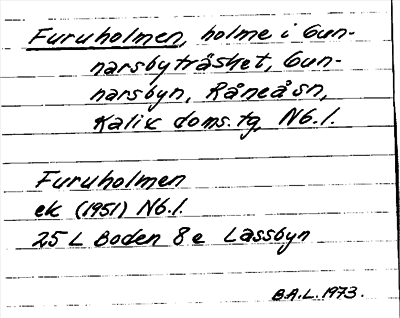 Furuholmen, holme i Gun-
narsbyträsket, Gun-
narsbyn, Råneå sn,
Kalix doms.tg, Nb.l.
Furuholmen
ek (1951) Nb.l.
25 L Boden 8 e Lassbyn
B.A.L. 1973.